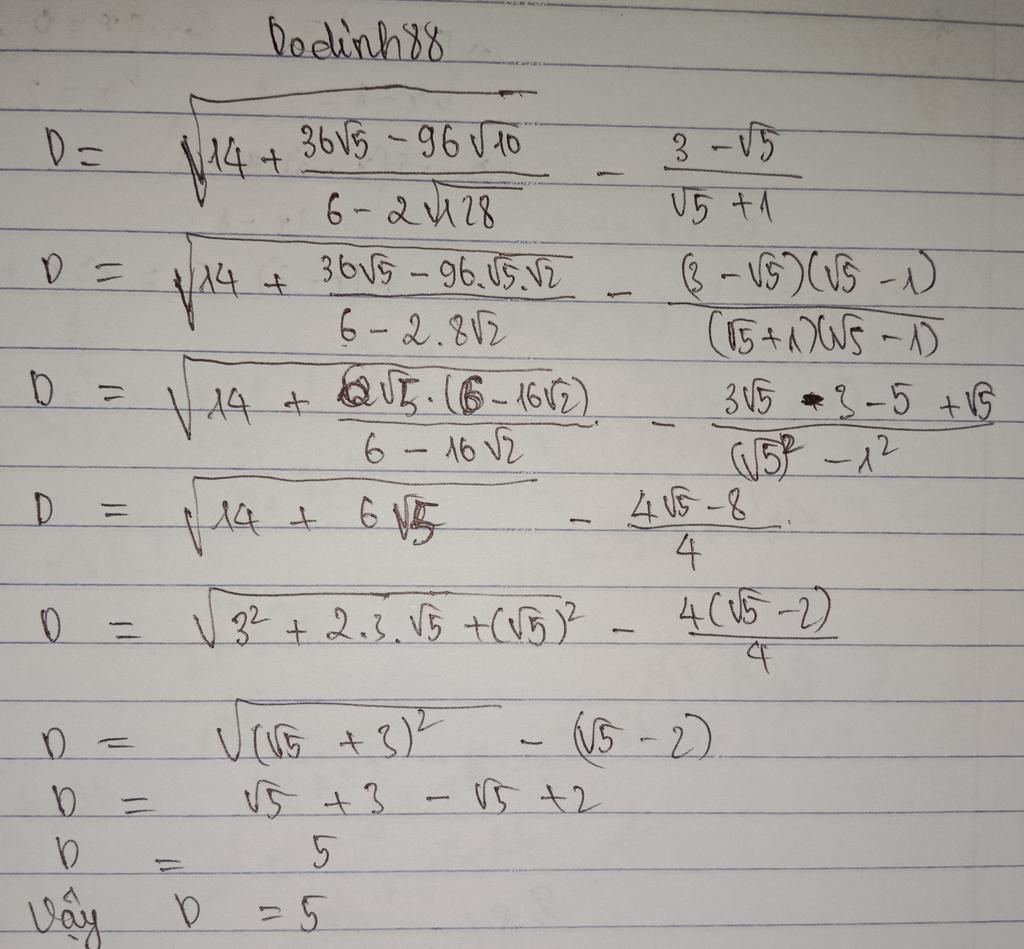 Dodinh88
D = √(14 + (36√5 − 96√10)/(6 − 2√128)) − (3 − √5)/(√5 + 1)
D = √(14 + (36√5 − 96.√5.√2)/(6 − 2.8√2)) − ((3 − √5)(√5 − 1))/((√5+1)(√5 − 1))
D = √(14 + (6√5.(6 − 16√2))/(6 − 16√2)) − (3√5 − 3 − 5 + √5)/((√5)² − 1²)
D = √(14 + 6√5) − (4√5 − 8)/4
D = √(3² + 2.3.√5 + (√5)²) − (4(√5 − 2))/4
D = √((√5 + 3)²) − (√5 − 2)
D = √5 + 3 − √5 + 2
D = 5
Vậy D = 5